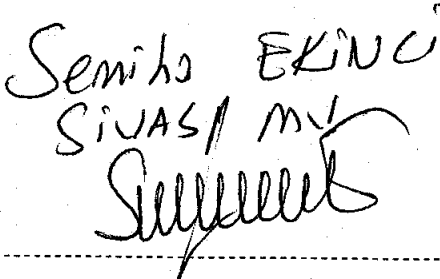 Semiha EKİNCİ
SİVAS MV